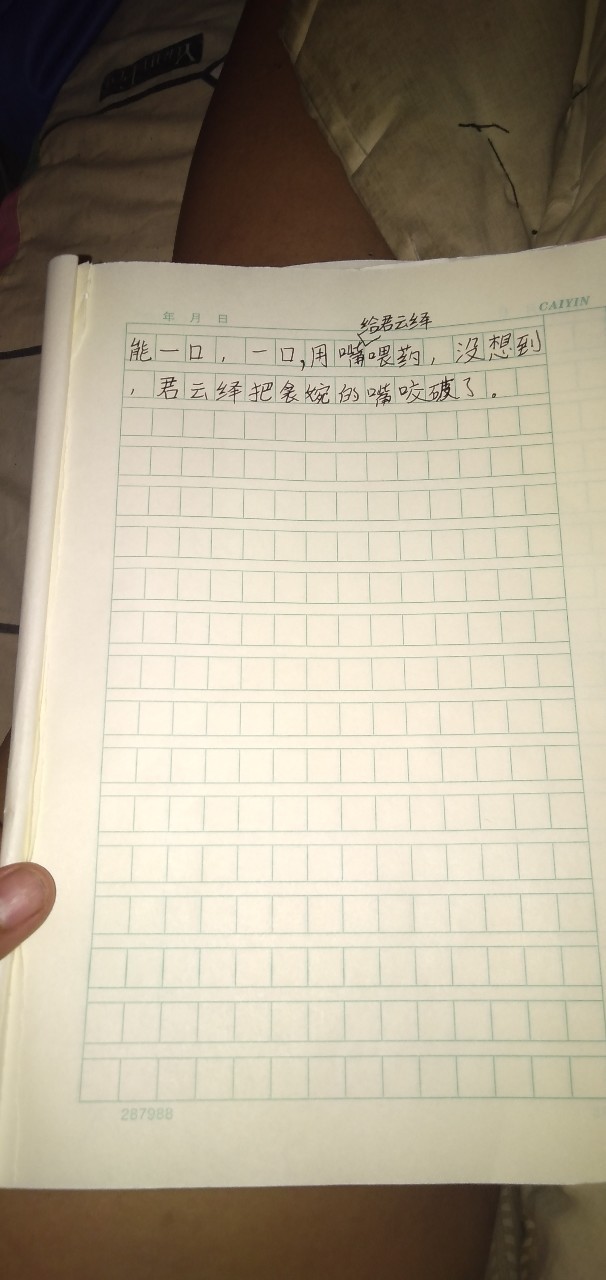 年 月 日
CAIYIN
给君云绎
能一口，一口，用嘴喂药，没想到
，君云绎把食婉的嘴咬破了。
287988